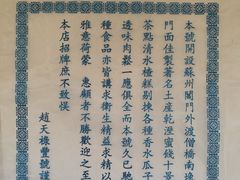 本號開設蘇州閶門外渡僧橋南逢
門面佳製著名土産乾溼蜜餞十景
茶點清水楂糕剔揀各種香水瓜子
透味肉鬆一應俱全而本號久已馳
種食品亦皆講求衛生精益求精以
雅意荷蒙 惠顧者不勝歡迎之至
本店招牌庶不致悞
趙天祿豐號謹